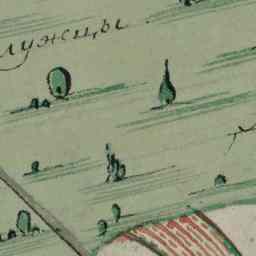 лужцы